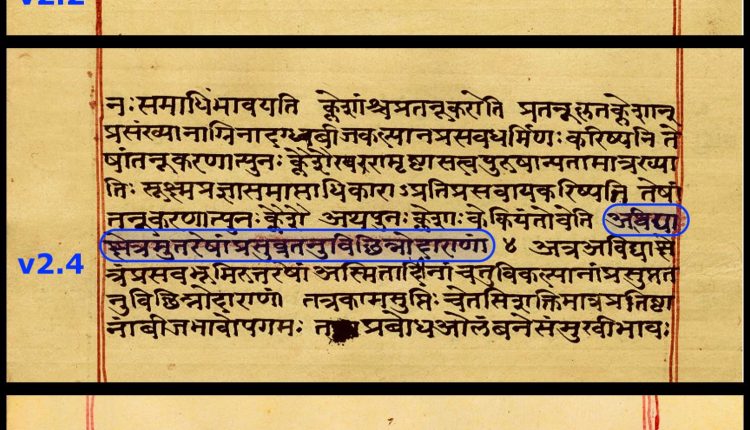 v2.2
नःसमाधिंभावयति क्लेशांश्चप्रतनूकरोति प्रतनूकृतक्लेशान्
प्रसंख्यानाग्निनादग्धबीजकल्पानप्रसवधर्मिणः करिष्यति ते
षांतनूकरणात्पुनः क्लेशैरपरामृष्टासत्वपुरुषान्यतामात्रख्या
तिः सूक्ष्मप्रज्ञासमाप्ताधिकाराऽप्रतिप्रसवायकरिष्यति तेषां
तनूकरणात्पुनः क्लेशै अथपुनः क्लेशाः केकियंतोवेति अविद्या
क्षेत्रमुतरेषांप्रसुप्ततनुविछिन्नोदाराणां ४ अत्रअविद्याक्षे
v2.4
त्रंप्रसवभूमिरुतरेषां अस्मितादीनांचतुर्विकल्पानांप्रसुप्तत
नुविछिन्नोदाराणां तत्रकाप्रसुप्तिः चेतसिशक्तिमात्रप्रतिष्ठा
नांबीजभावोपगमः प्रबोधओलंबनेसंमुखीभावः